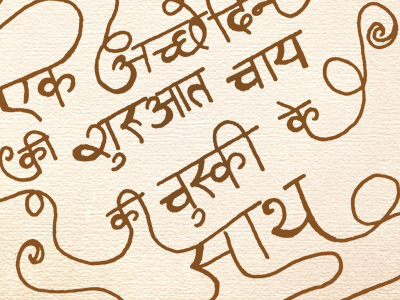 एक अच्छे दिन
की शुरुआत चाय के
की चुस्की
साथ